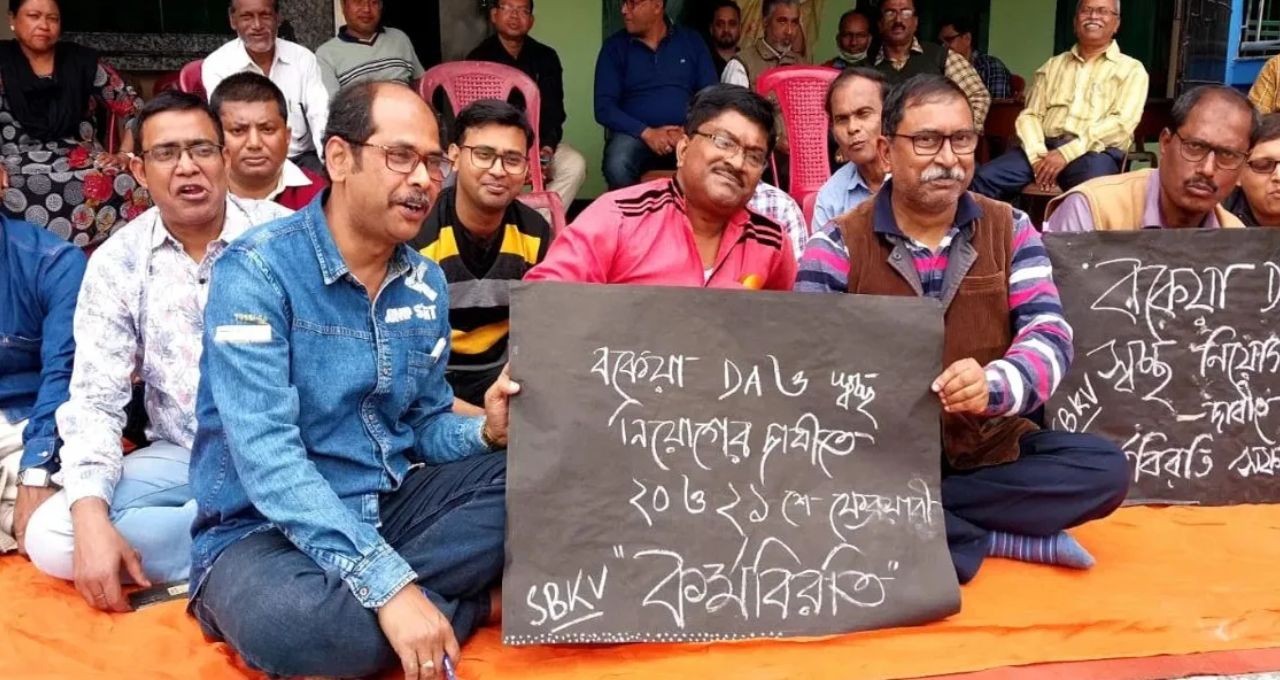 বকেয়া DA ও স্বচ্ছ
নিয়োগের দাবীতে
২০ ও ২১ শে ফেব্রুয়ারী
SBKV "কর্মবিরতি"
"বকেয়া D
স্বচ্ছ নিয়োগ
SBKV – দাবীতে
র্মবিরতি সফল